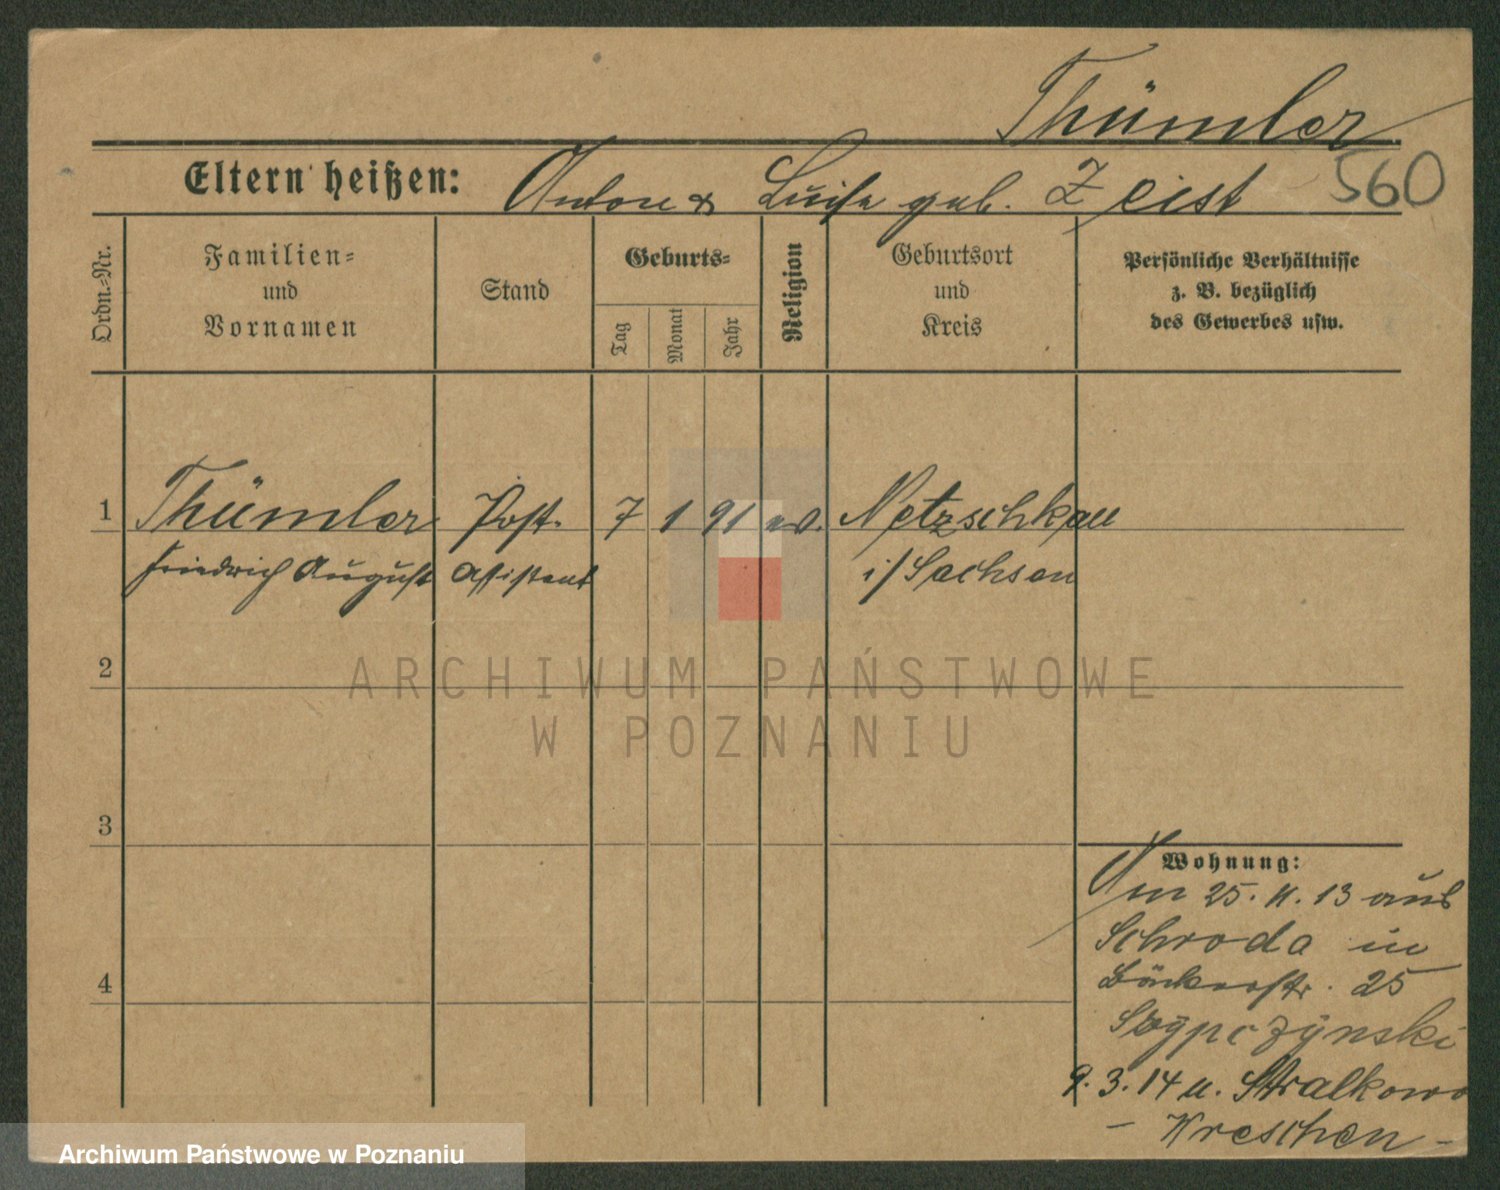 Thümler
560
Eltern heißen: Anton & Luise geb. Zeist
Ordn.-Nr.
Familien-
und
Vornamen
Stand
Geburts-
Tag
Monat
Jahr
Religion
Geburtsort
und
Kreis
Persönliche Verhältnisse
z. B. bezüglich
des Gewerbes usw.
1 Thümler Post- 7 1 91 ev. Netzschkau
Friedrich August Assistent i/Sachsen
2
3
4
Wohnung:
Am 25. 11. 13 aus
Schroda in
Bäckerstr. 25
9. 3. 14 n. Stralkowo
- Wreschen -
ARCHIWUM PAŃSTWOWE
W POZNANIU
Archiwum Państwowe w Poznaniu